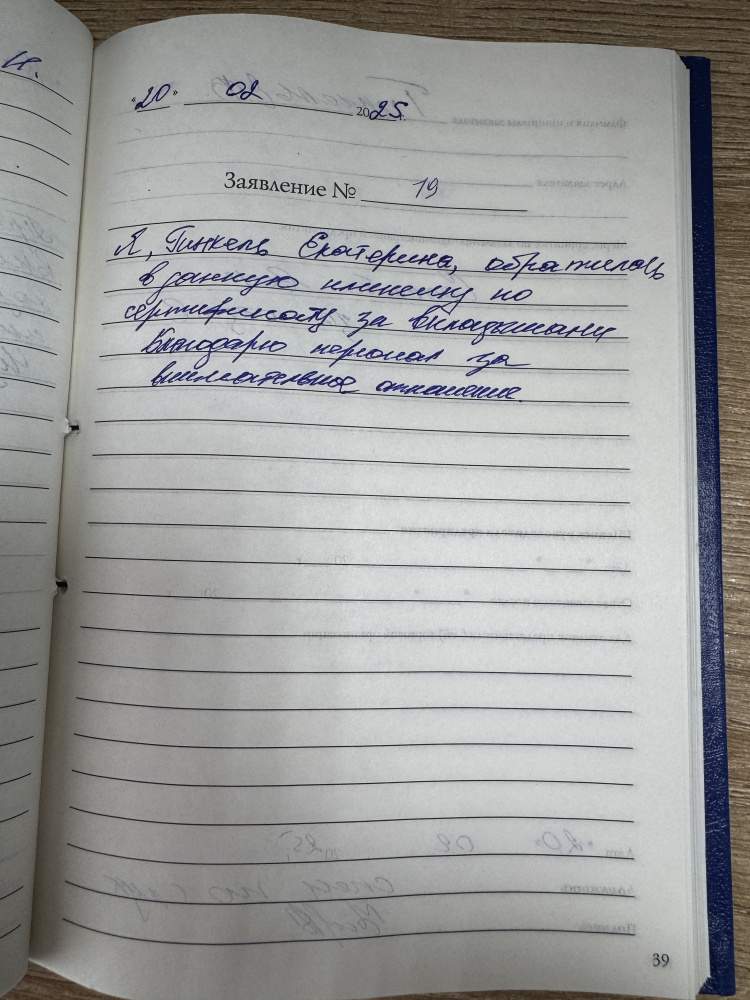 И.
"20" 02 2025
Заявление № 19
Я, Гинкель Екатерина, обратилась
в данную клинику по
сертификату за вкладышами
Благодарю персонал за
внимательное отношение.
39